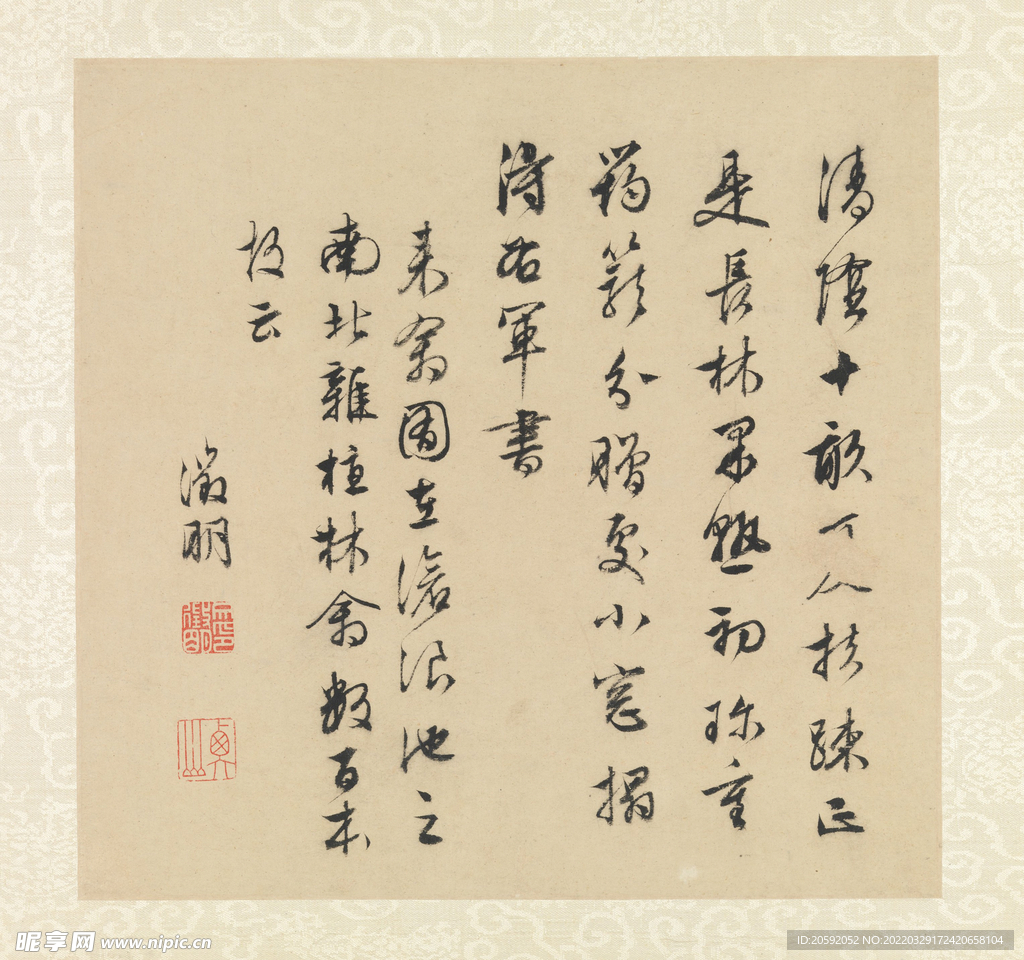 清陰十畝夏扶踈正
是長林果熟初珍重
筠籠分贈處小窓搨
得右軍書
來禽囿在滄浪池之
南北雜植林禽數百本
故云
徵明
昵享网 www.nipic.cn
ID:20592052 NO:20220329172420658104